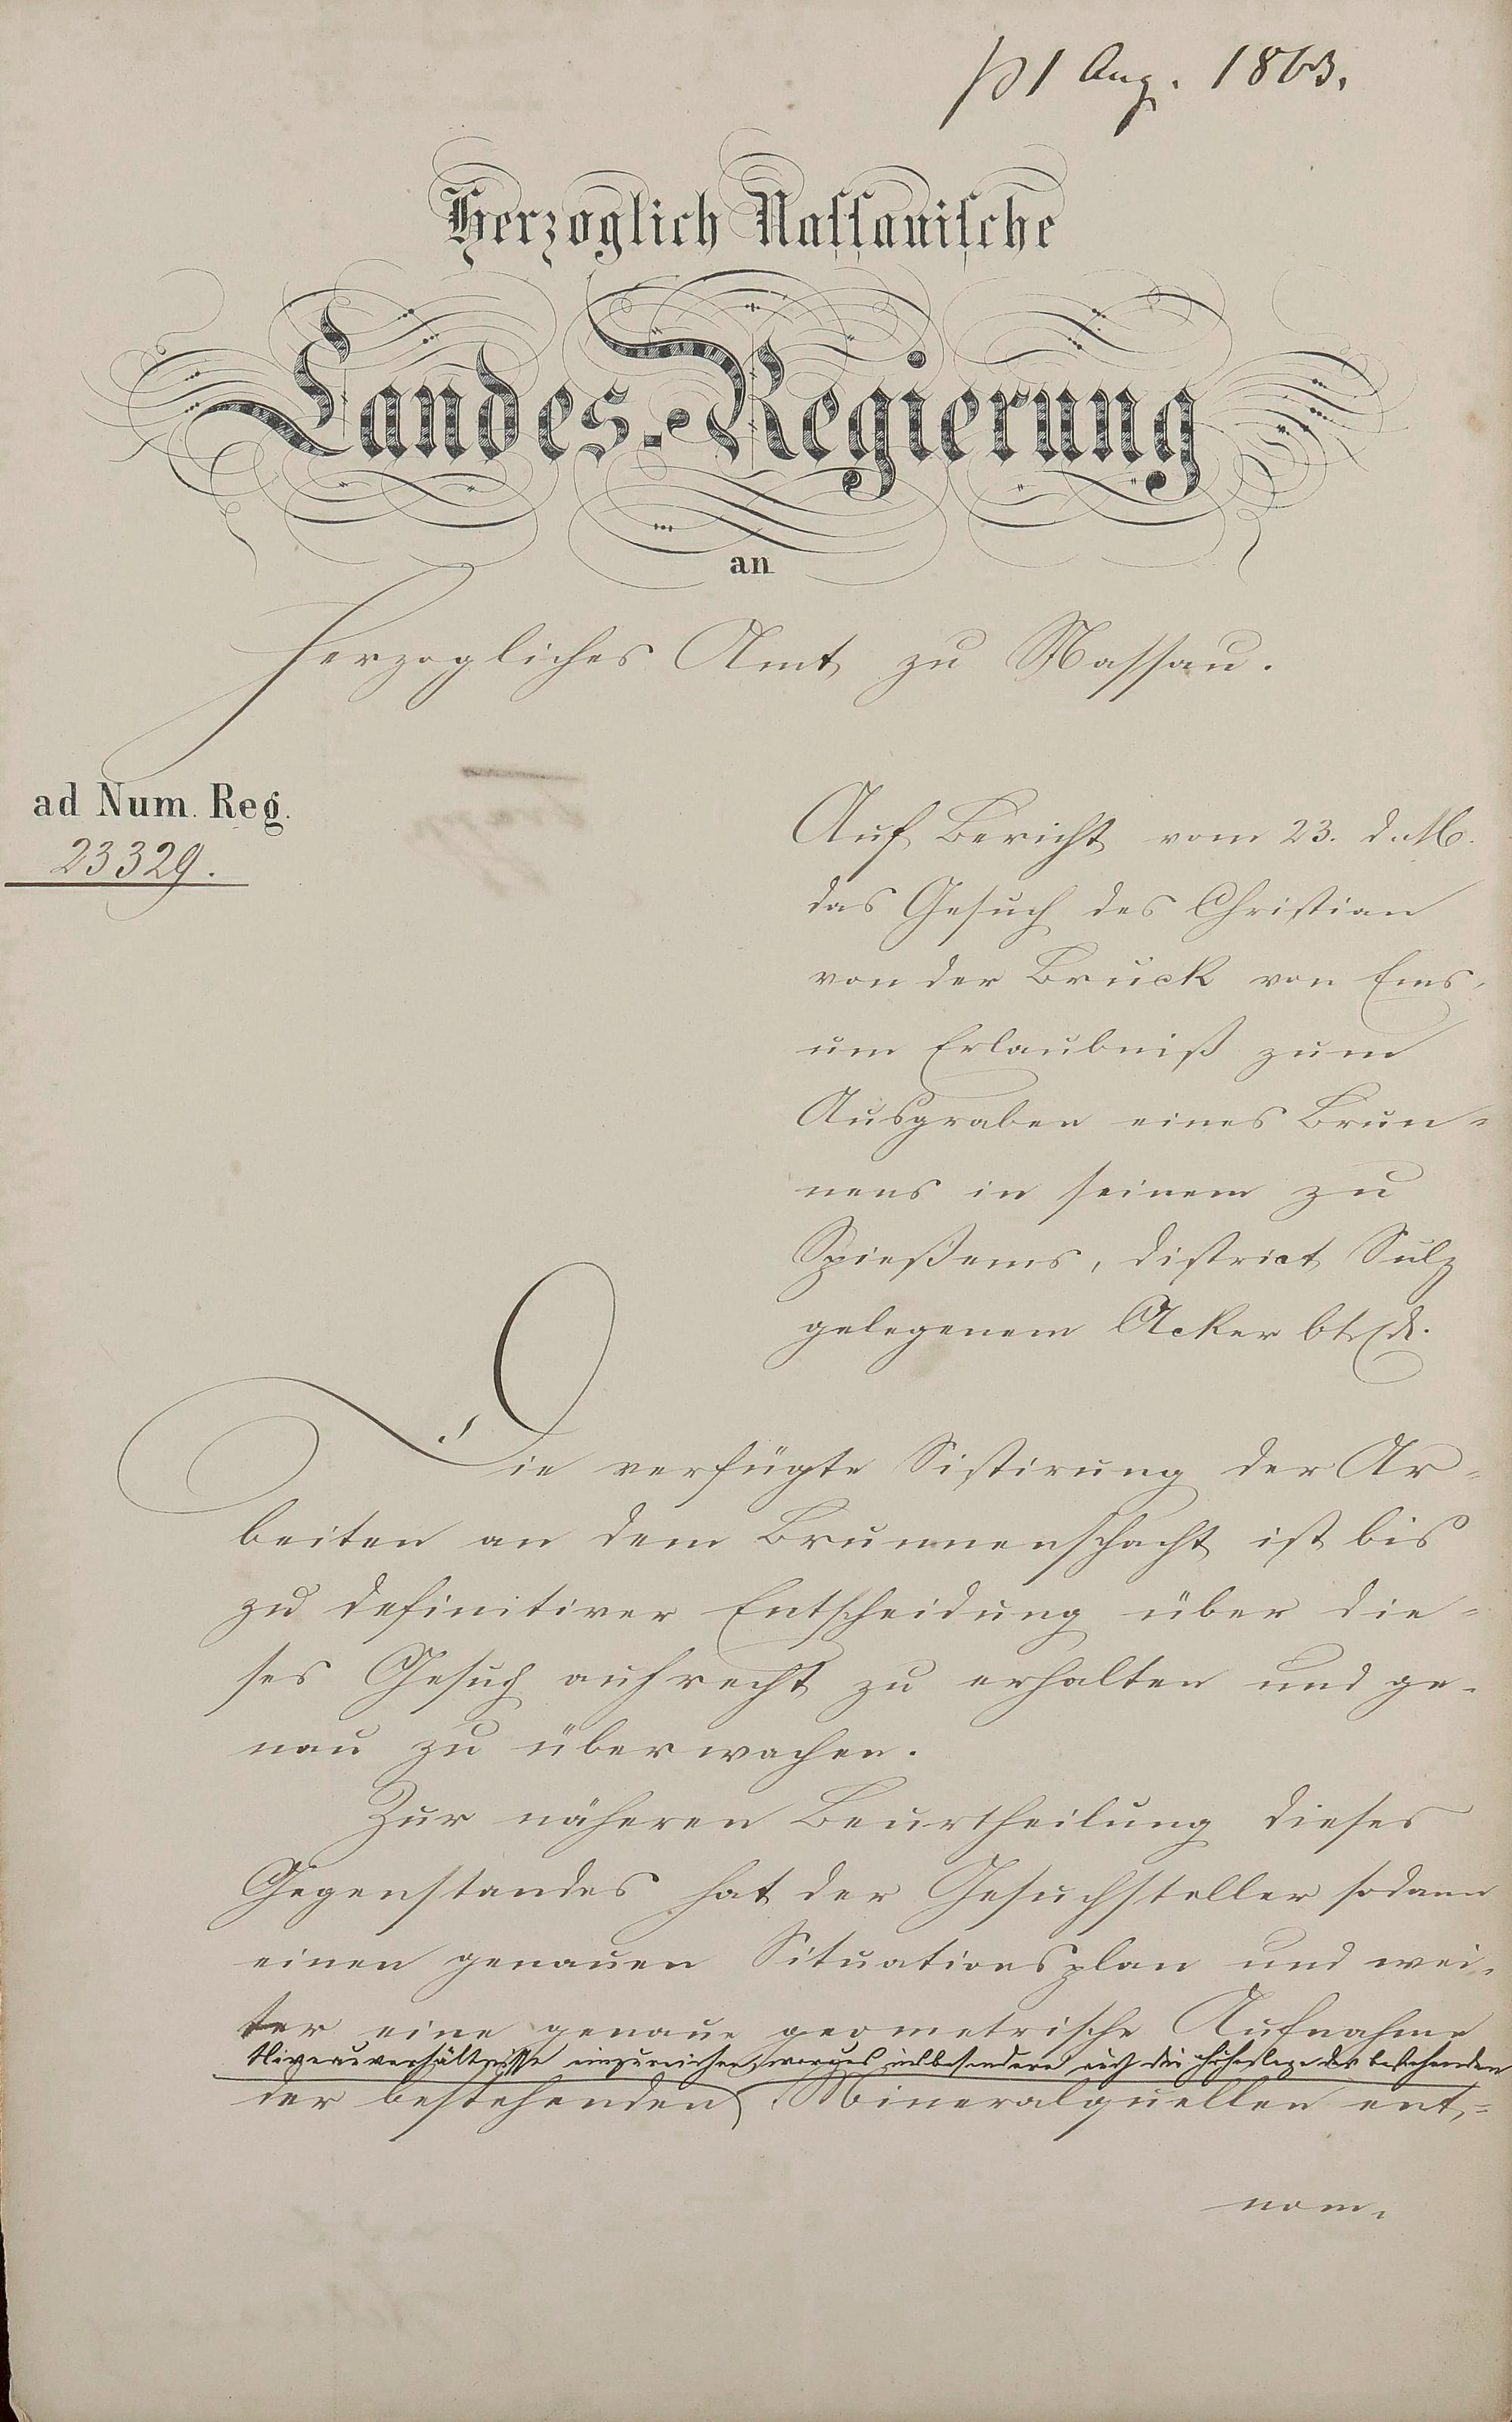 1 Aug. 1863.
Herzoglich Nassauische
Landes-Regierung
an
Herzogliches Amt zu Nassau.
ad Num. Reg.
23329.
Auf Bericht vom 23. d. M.
das Gesuch des Christian
von der Bruck von Ems,
um Erlaubniß zum
Ausgraben eines Brun-
nens in seinem zu
Spießems, District Sulz
gelegenem Acker btrfd.
Die verfügte Sistirung der Ar-
beiten an dem Brunnenschacht ist bis
zu definitiver Entscheidung über die-
ses Gesuch aufrecht zu erhalten und ge-
nau zu überwachen.
Zur näheren Beurtheilung dieses
Gegenstandes hat der Gesuchsteller sodann
einen genauen Situationsplan und wei-
ter eine genaue geometrische Aufnahme
Niveauverhältnisse einzureichen, woraus insbesondere auch die Höhenlage der bestehenden
der bestehenden Mineralquellen ent-
nom-